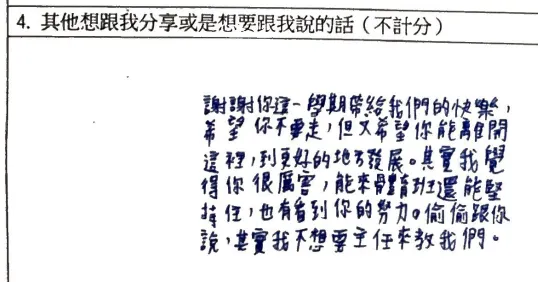 4. 其他想跟我分享或是想要跟我說的話（不計分）
謝謝你這一學期帶給我們的快樂，
希望你不要走，但又希望你能離開
這裡，到更好的地方發展。其實我覺
得你很厲害，能來體育班還能堅
持住，也有看到你的努力。偷偷跟你
說，其實我不想要主任來教我們。